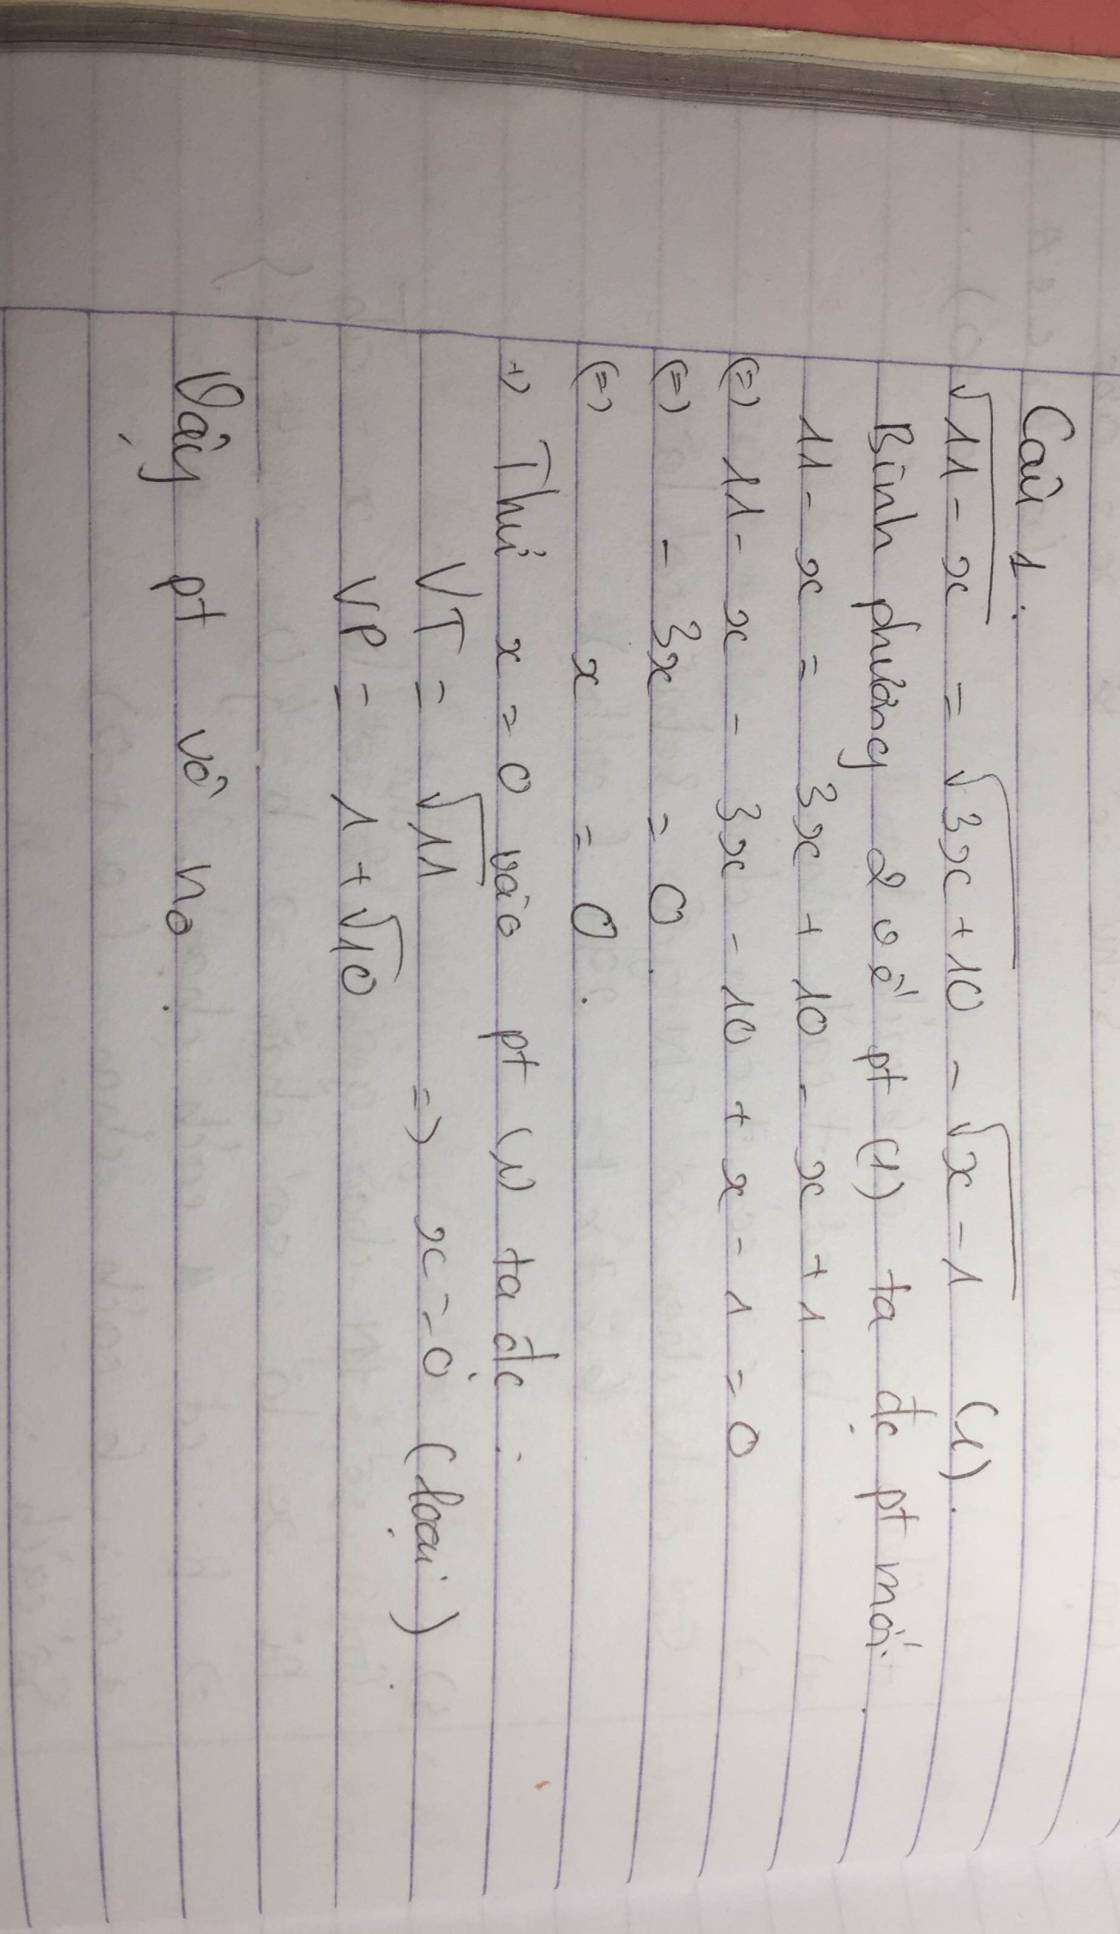 Câu 1.
√11 - x = √3x + 10 - √x - 1 (1).
Bình phương 2 vế pt (1) ta đc pt mới.
11 - x = 3x + 10 - x + 1
(=) 11 - x - 3x - 10 + x - 1 = 0
(=) - 3x = 0.
(=) x = 0.
+) Thử x = 0 vào pt (1) ta đc:
VT = √11 => x = 0 (loại)
VP = 1 + √10
Vậy pt vô no.